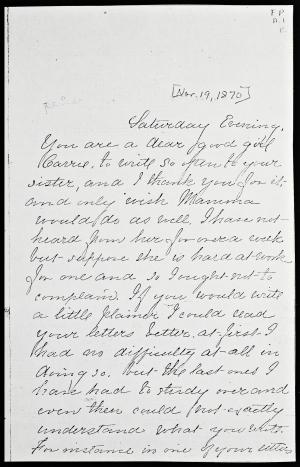 [Nov. 19, 1870]
Saturday Evening.
You are a dear good girl
Carrie, to write so often to your
sister, and I thank you for it,
and only wish Mamma
would do as well. I have not
heard from her for over a week
but suppose she is hard at work
for one and so I ought not to
complain. If you would write
a little plainer I could read
your letters better. at first I
had no difficulty at all in
doing so. but the last ones I
have had to study over and
even then could not exactly
understand what you write.
For instance in one of your letters